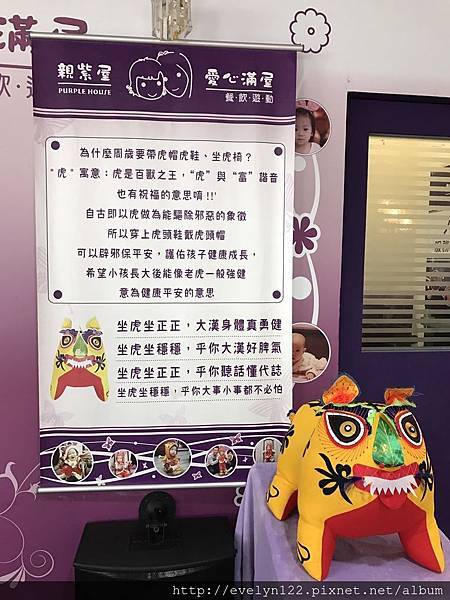 滿屋
飲·遊
親紫屋
PURPLE HOUSE
愛心滿屋
餐·飲·遊·動
為什麼周歲要帶虎帽虎鞋、坐虎椅？
"虎"寓意：虎是百獸之王，"虎"與"富"諧音
也有祝福的意思唷!!'
自古即以虎做為能驅除邪惡的象徵
所以穿上虎頭鞋戴虎頭帽
可以辟邪保平安，護佑孩子健康成長，
希望小孩長大後能像老虎一般強健
意為健康平安的意思
坐虎坐正正，大漢身體真勇健
坐虎坐穩穩，乎你大漢好脾氣
坐虎坐正正，乎你聽話懂代誌
坐虎坐穩穩，乎你大事小事都不必怕
http://evelyn122.pixnet.net/album